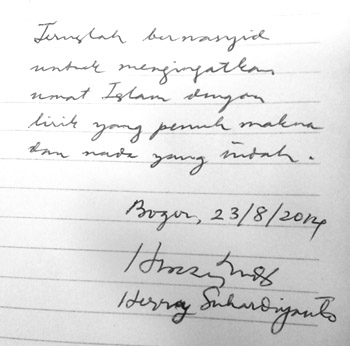 Teruslah bernasyid
untuk mengingatkan
umat Islam dengan
lirik yang penuh makna
dan nada yang indah.
Bogor, 23/8/2014
Herry Suhardiyanto